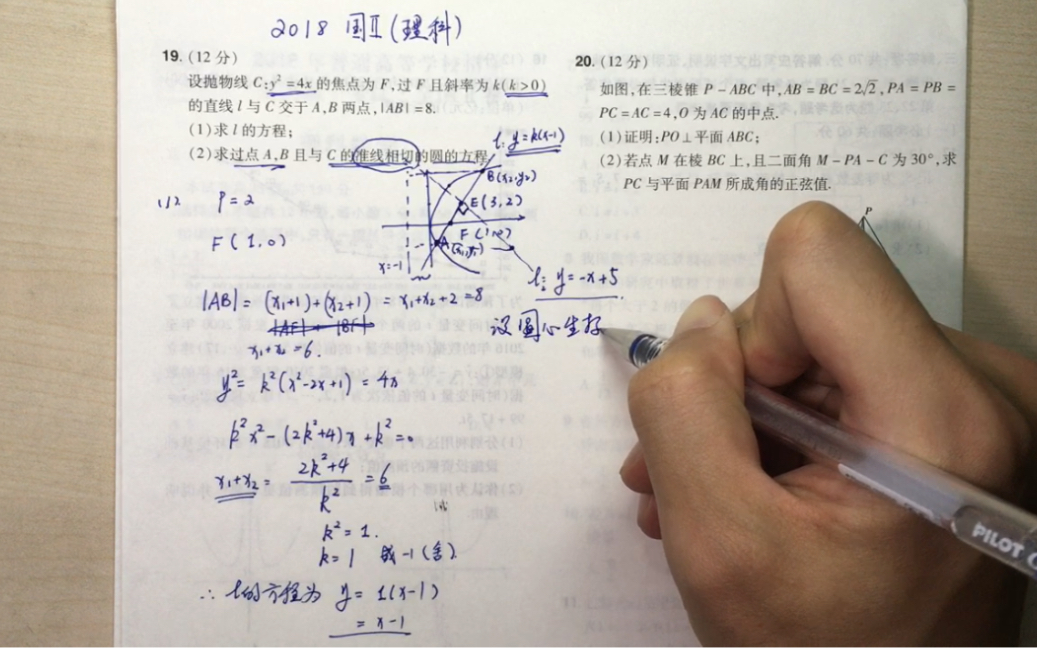 2018 国Ⅱ(理科)
19.(12分)
设抛物线 C:y²=4x 的焦点为 F,过 F 且斜率为 k(k>0)
的直线 l 与 C 交于 A,B 两点,|AB|=8.
(1)求 l 的方程;
(2)求过点 A,B 且与 C 的准线相切的圆的方程.
l: y=k(x-1)
B(x₂,y₂)
E(3,2)
F(1,0)
A(x₁,y₁)
x=-1
l: y=-x+5
设圆心坐标
(1) p=2
F(1,0)
|AB|= (x₁+1)+(x₂+1) = x₁+x₂+2=8
|AF|+|BF|
x₁+x₂=6.
y²= k²(x²-2x+1) = 4x
k²x²-(2k²+4)x+k²=0
x₁+x₂= 2k²+4/k² =6
k²=1.
k=1 或-1(舍)
∴ l的方程为 y= 1(x-1)
= x-1
20.(12分)
如图,在三棱锥 P-ABC 中,AB=BC=2√2,PA=PB=
PC=AC=4,O 为 AC 的中点.
(1)证明:PO⊥平面 ABC;
(2)若点 M 在棱 BC 上,且二面角 M-PA-C 为 30°,求
PC 与平面 PAM 所成角的正弦值.
P
PILOT